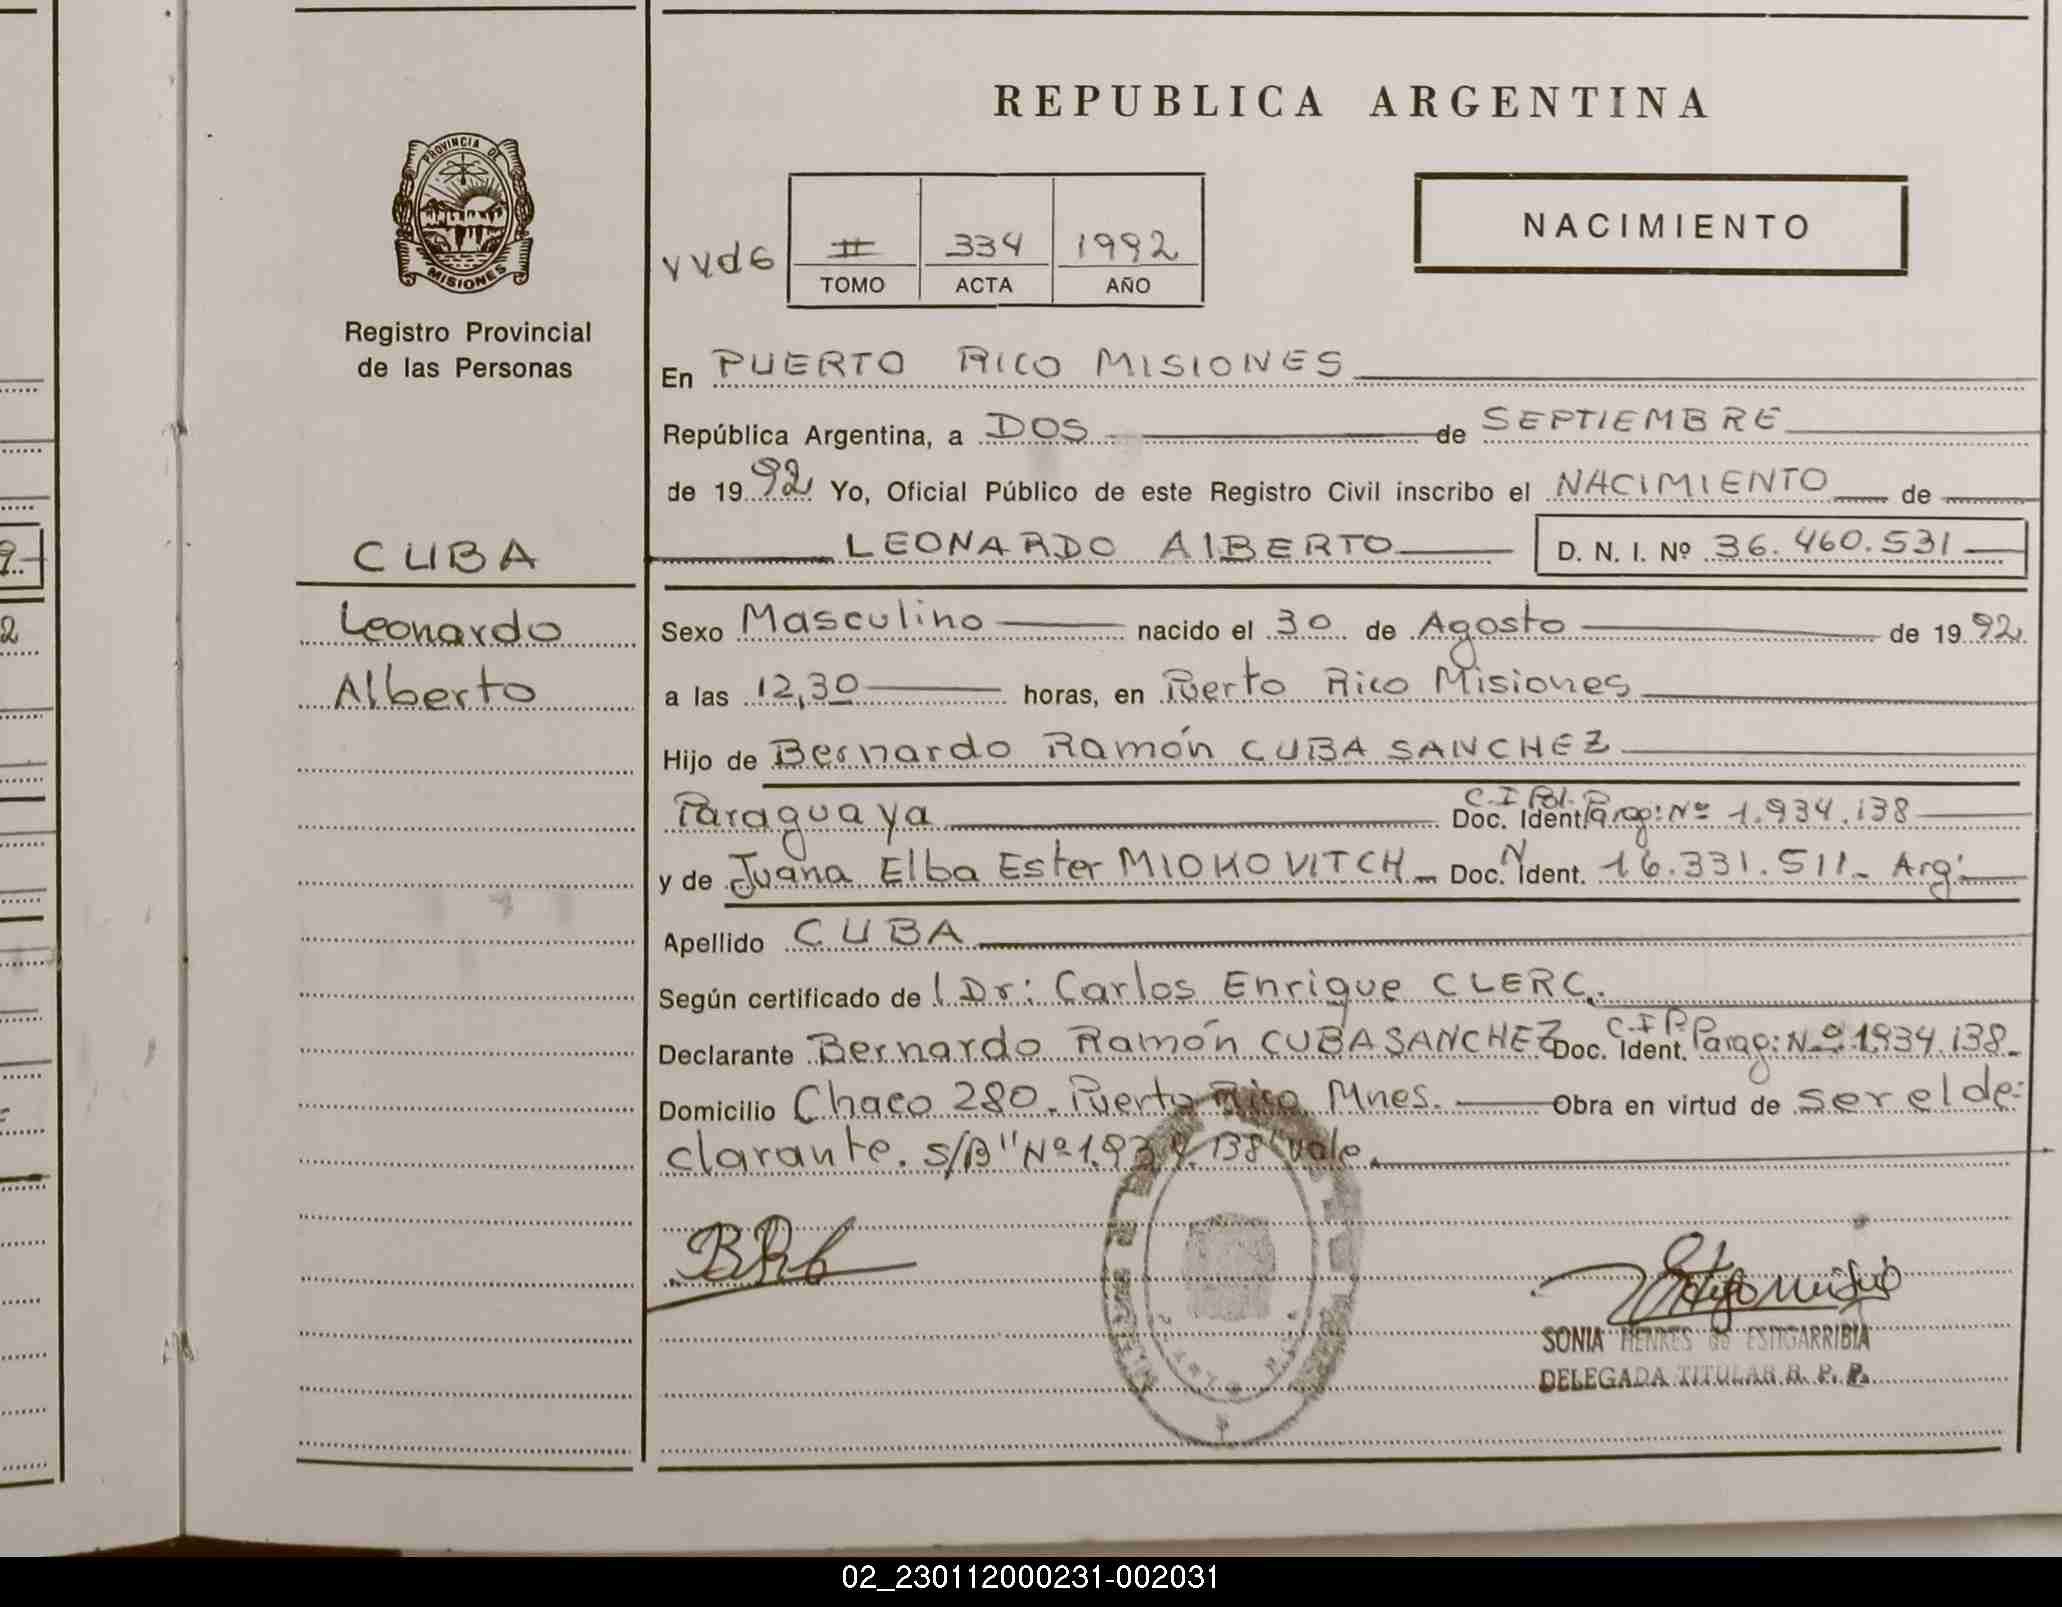 REPUBLICA ARGENTINA
PROVINCIA DE
MISIONES
Registro Provincial
de las Personas
NACIMIENTO
II 334 1992
TOMO ACTA AÑO
En PUERTO RICO MISIONES
República Argentina, a DOS de SEPTIEMBRE
de 1992 Yo, Oficial Público de este Registro Civil inscribo el NACIMIENTO de
LEONARDO AlBERTO D. N. I. Nº 36.460.531
CUBA
Leonardo
Alberto
Sexo Masculino nacido el 30 de Agosto de 1992
a las 12,30 horas, en Puerto Rico Misiones
Hijo de Bernardo Ramón CUBA SANCHEZ
Paraguaya Doc. Ident. C.I Pol. Parag: Nº 1.934.138
y de Juana Elba Ester MIOKOVITCH Doc. N Ident. 16.331.511- Arg:
Apellido CUBA
Según certificado de l Dr: Carlos Enrique CLERC.
Declarante Bernardo Ramón CUBA SANCHEZ Doc. Ident. C.I P. Parag: Nº 1.934.138.
Domicilio Chaco 280. Puerto Rico Mnes. Obra en virtud de ser el de-
clarante. S/B "Nº 1.934.138" vale.
SONIA HENKES de ESTIGARRIBIA
DELEGADA TITULAR R. P. P.
02_230112000231-002031